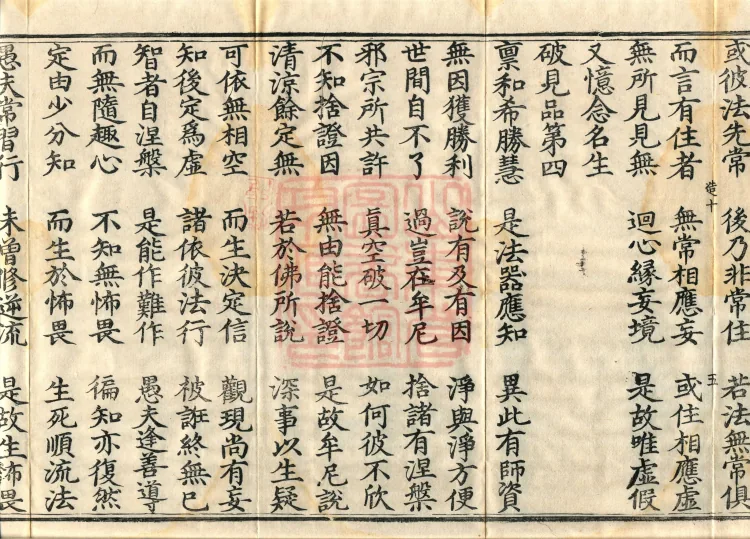 或彼法先常 後乃非常住 若法無常俱
而言有住者 無常相應妄 或住相應虛
無所見見無 迴心緣妄境 是故唯虛假
又憶念名生
破見品第四
稟和希勝慧 是法器應知 異此有師資
無因獲勝利 說有及有因 淨與淨方便
世間自不了 過豈在牟尼 捨諸有涅槃
邪宗所共許 真空破一切 如何彼不欣
不知捨證因 無由能捨證 是故牟尼說
清涼餘定無 若於佛所說 深事以生疑
可依無相空 而生決定信 觀現尚有妄
知後定為虛 諸依彼法行 被誑終無已
智者自涅槃 是能作難作 愚夫逢善導
而無隨趣心 不知無怖畏 徧知亦復然
定由少分知 而生於怖畏 生死順流法
愚夫常習行 未曾修逆流 是故生怖畏